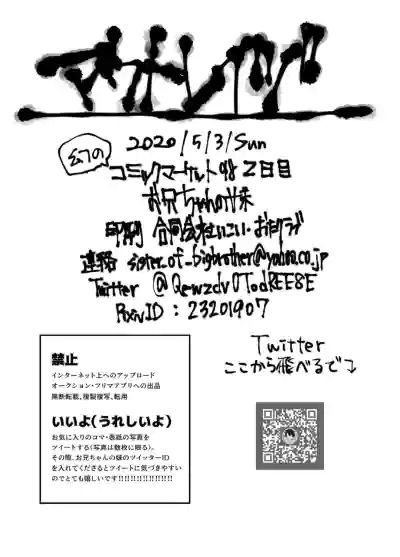 マオレンジ
2020/5/3/Sun
幻の
コミックマーケット98 2日目
お兄ちゃんの妹
印刷 合同会社いこい・おたクラブ
連絡 sister_of_bigbrother@yahoo.co.jp
Twitter @QewzdvOTodREE8E
Pixiv ID : 23201907
禁止
インターネット上へのアップロード
オークション・フリマアプリへの出品
無断転載、複製複写、転用
いいよ(うれしいよ)
お気に入りのコマ・表紙の写真を
ツイートする(写真は数枚に限る)。
その際、お兄ちゃんの妹のツイッターID
を入れてくださるとツイートに気づきやすい
のでとても嬉しいです!!!!!!!!!!!!!!!!!
Twitter
ここから飛べるで